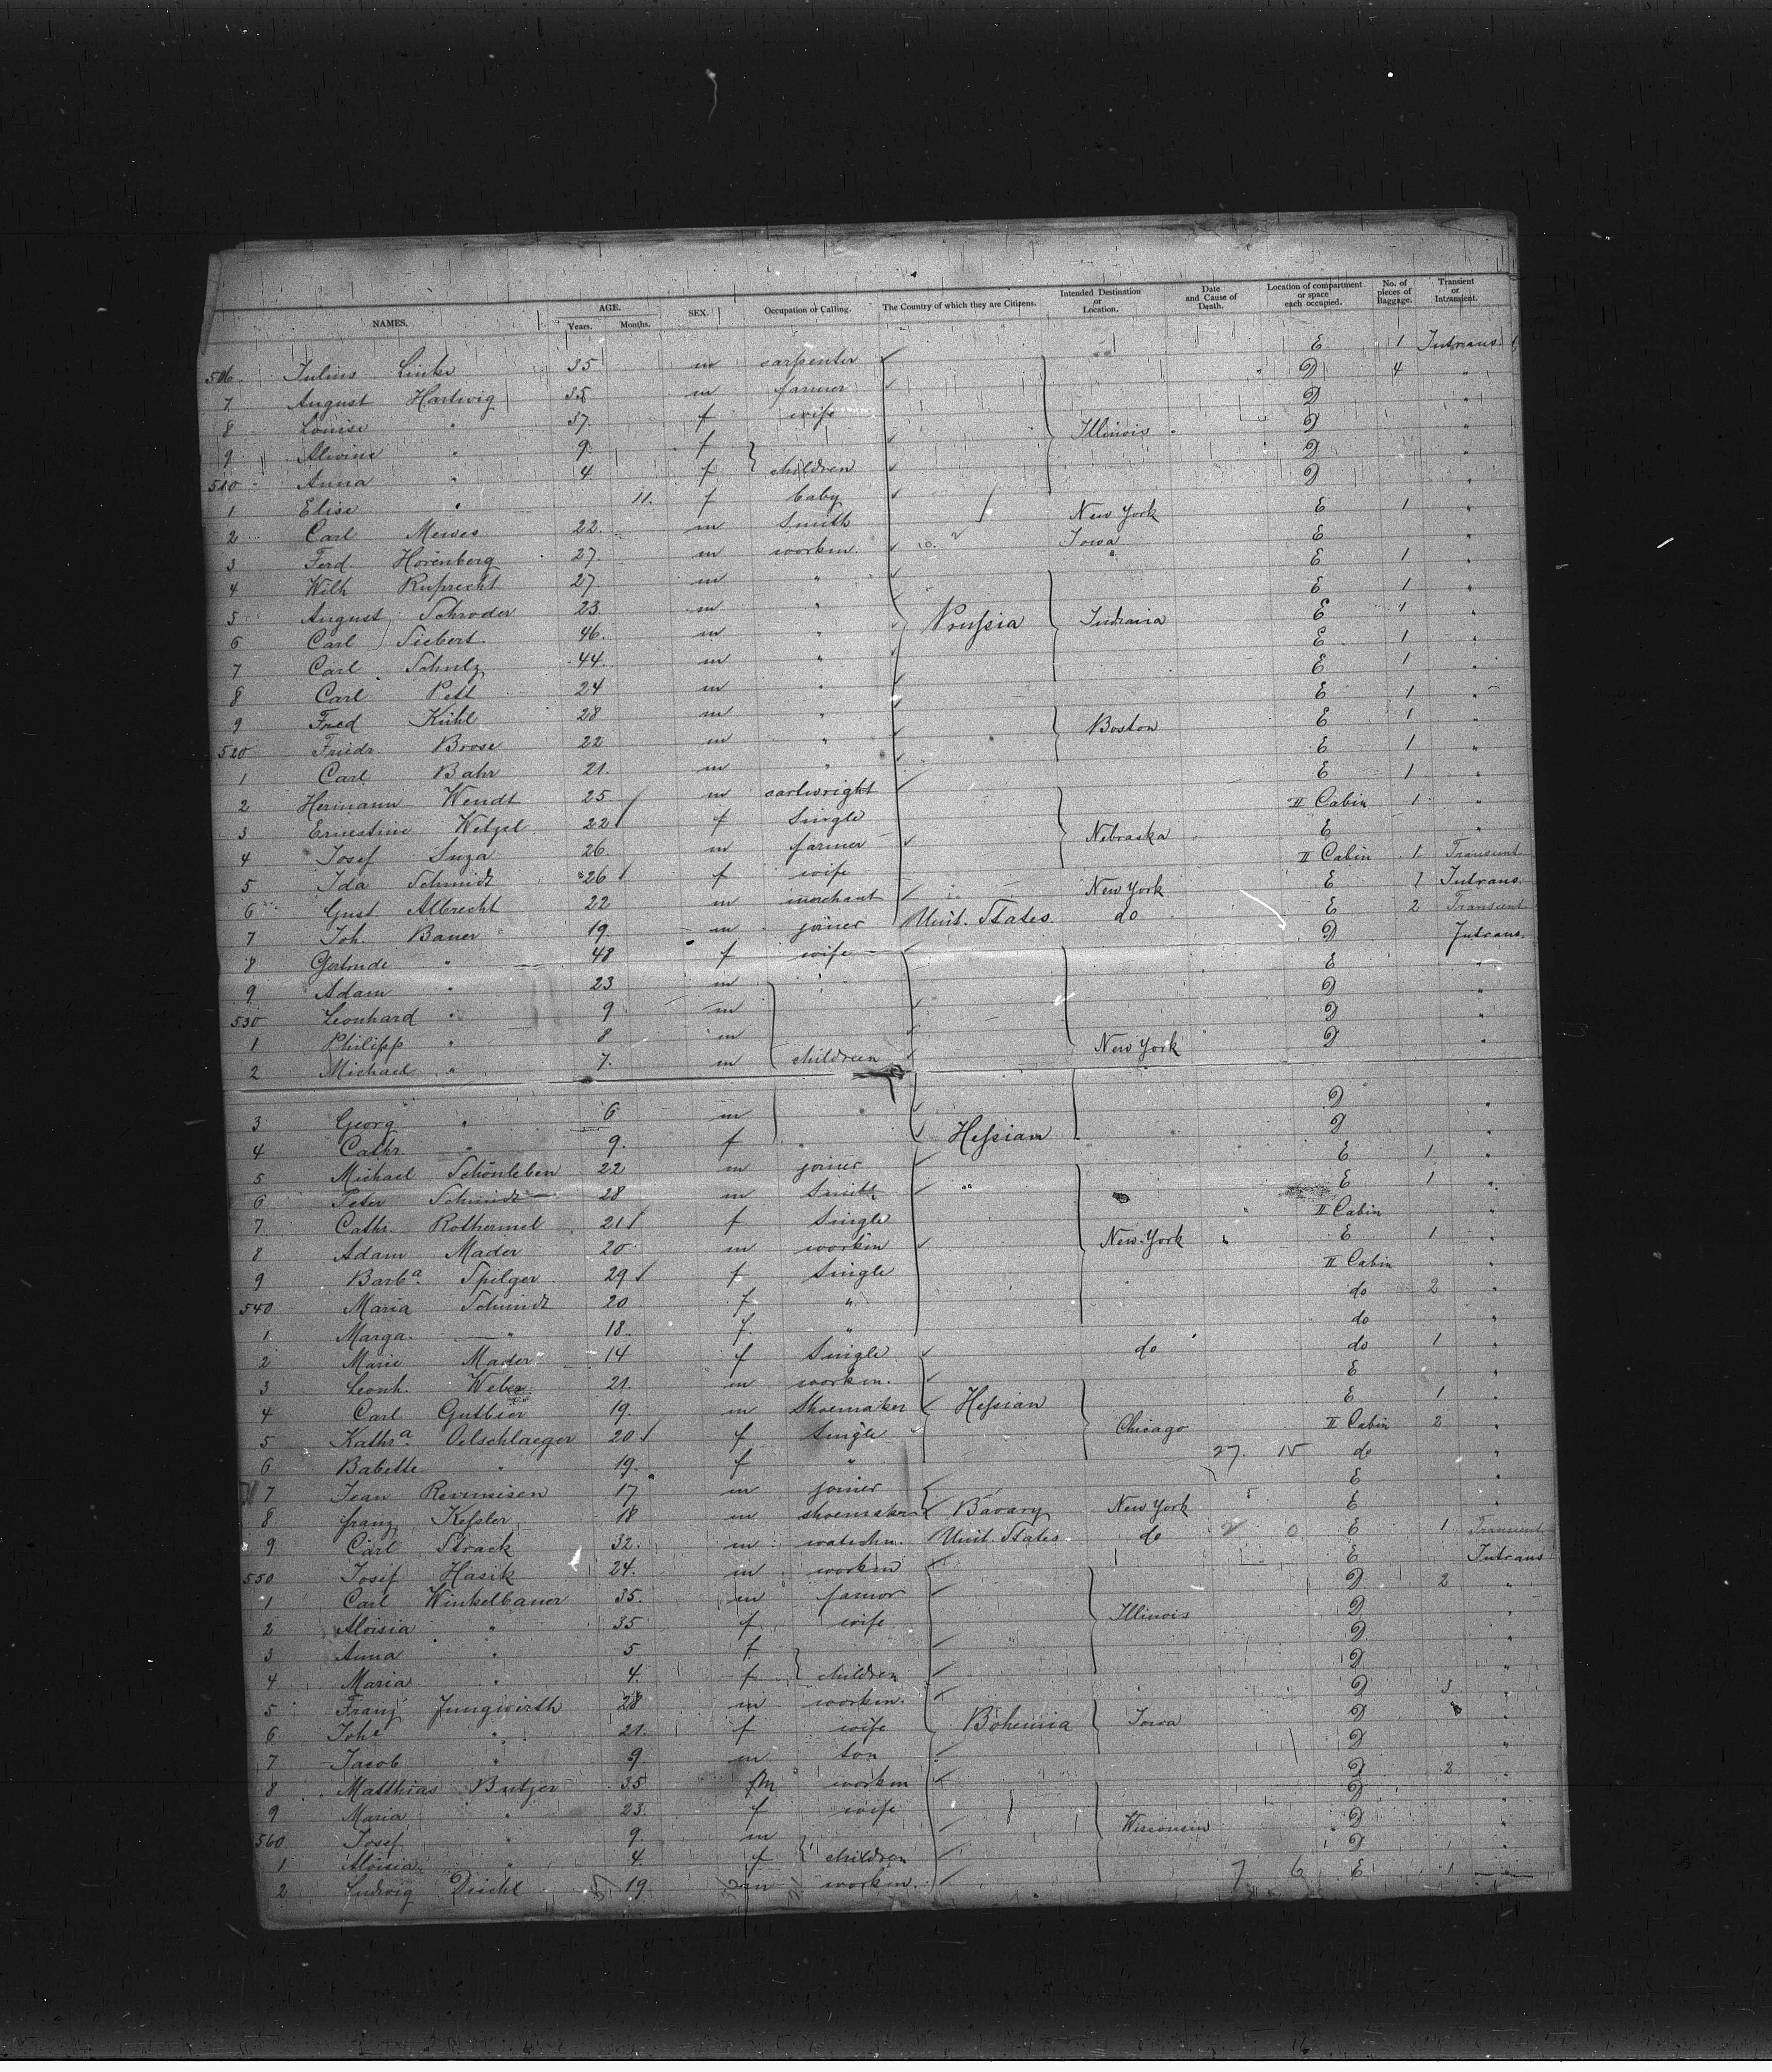 NAMES. AGE. Years. Months. SEX. Occupation or Calling. The Country of which they are Citizens. Intended Destination or Location. Date and Cause of Death. Location of compartment or space each occupied. No. of pieces of Baggage. Transient or Intransient.
506 Julius Linke 35 m carpenter E 1 Intrans.
7 August Hartwig 38 m farmer D 4 "
8 Louise " 37 f wife D "
9 Alwine " 9 f Illinois D "
510 Anna " 4 f children D "
1 Elise " 11 f baby D "
2 Carl Mewes 22 m Smith New York E 1 "
3 Ferd. Horenberg 27 m workm. Iowa E "
4 Wilh Ruprecht 27 m " " E 1 "
5 August Schroder 23 m " E 1 "
6 Carl Siebert 46 m " Prussia Indiana E 1 "
7 Carl Schulz 44 m " E 1 "
8 Carl Pett 24 m " E 1 "
9 Fred Kühl 28 m " E 1 "
520 Friedr. Brose 22 m " Boston E 1 "
1 Carl Bahr 21 m " E 1 "
2 Hermann Wendt 25 m cartwright E 1 "
3 Ernestine Wetzel 22 f Single II Cabin 1 "
4 Josef Suza 26 m farmer Nebraska E "
5 Ida Schmidt 26 f wife II Cabin 1 Transient
6 Gust Albrecht 22 m merchant New York E 1 Intrans.
7 Joh. Bauer 19 m joiner Unit. States do E 2 Transient
8 Gertrude " 48 f wife D Intrans.
9 Adam " 23 m E "
530 Leonhard " 9 m D "
1 Philipp " 8 m D "
2 Michael " 7 m children New York D "
3 Georg " 6 m D "
4 Cathr. " 9 f Hessian D "
5 Michael Schönleben 22 m joiner E 1 "
6 Peter Schmidt 28 m Smith " E 1 "
7 Cathr. Rothermel 21 f Single II Cabin "
8 Adam Mader 20 m workm New York E 1 "
9 Barba Spilger 29 f Single II Cabin "
540 Maria Schmidt 20 f " do 2 "
1 Marga. " 18 f " do "
2 Marie Mader 14 f Single do do 1 "
3 Leonh. Weber 21 m workm. E "
4 Carl Gutbier 19 m Shoemaker Hessian E 1 "
5 Kathra Oelschlaeger 20 f Single Chicago II Cabin 2 "
6 Babette " 19 f " 27. 15 do "
7 Jean 17 m joiner E "
8 Franz Kessler 18 m shoemaker Bavary New York E "
9 Carl Strack 32 m watchm. Unit. States do 2 0 E 1 Transient
550 Josef Hasik 24 m workm E Intrans
1 Carl Winkelbauer 35 m farmer D 2 "
2 Aloisia " 35 f wife Illinois D "
3 Anna " 5 f D "
4 Maria " 4 f children D "
5 Franz Jungwirth 28 m workm. D 3 "
6 Johe " 21 f wife Bohemia Iowa D "
7 Jacob " 9 m Son D "
8 Matthias Butzer 35 m workm D 2 "
9 Maria " 23 f wife D "
560 Josef " 9 m Wisconsin D "
1 Aloisia " 4 f children D "
2 Ludwig 19 m workm. 7 6 E 1